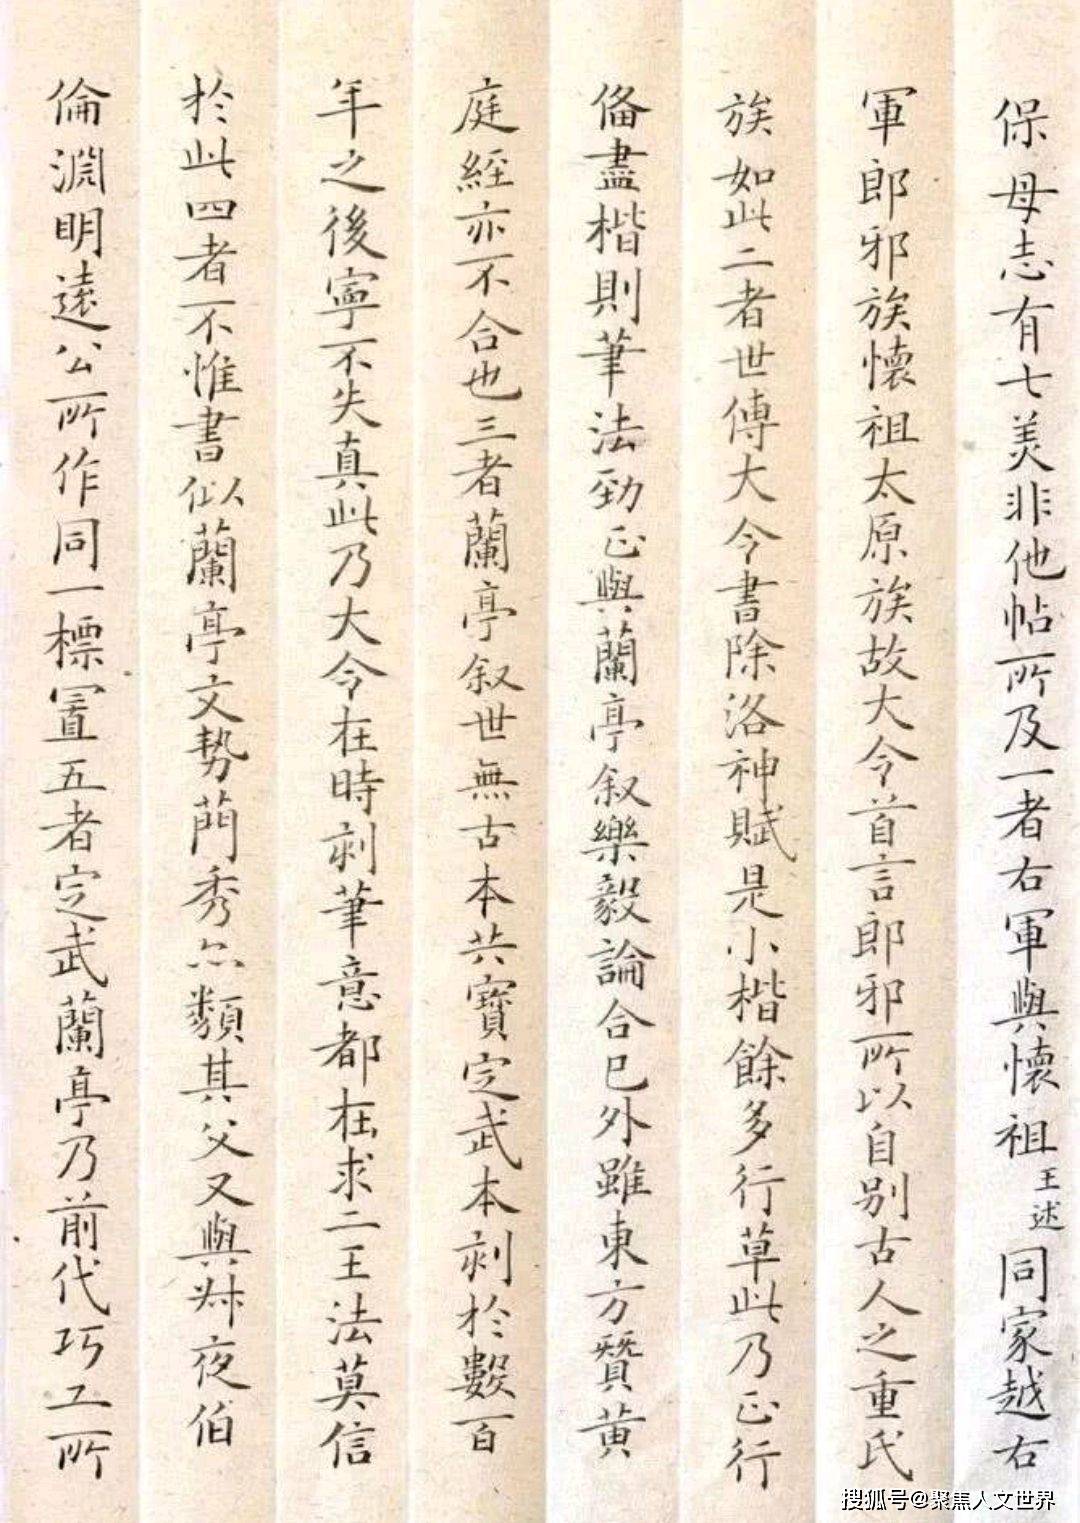 保母志有七美非他帖所及一者右軍與懷祖王述同家越右
軍郎邪族懷祖太原族故大令首言郎邪所以自别古人之重氏
族如此二者世傳大令書除洛神賦是小楷餘多行草此乃正行
俻盡楷則筆法勁正與蘭亭叙樂毅論合已外雖東方贊黃
庭經亦不合也三者蘭亭叙世無古本共寶定武本刻於數百
年之後寧不失真此乃大令在時刻筆意都在求二王法莫信
於此四者不惟書似蘭亭文勢蕳秀亦類其父又與叔夜伯
倫淵明遠公所作同一標置五者定武蘭亭乃前代巧工所
搜狐号@聚焦人文世界